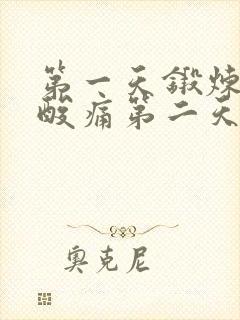 第一天鍛煉
酸痛第二天
奧克尼